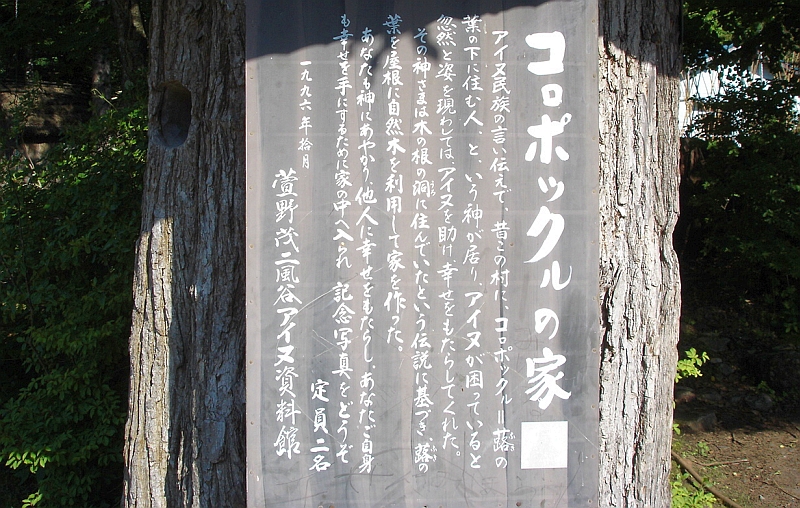 コロポックルの家
アイヌ民族の言い伝えで、昔この村に、コロポックル＝蕗の
葉の下に住む人、と、いう神が居り、アイヌが困っていると
忽然と姿を現わしては、アイヌを助け、幸せをもたらしてくれた。
その神さまは木の根の洞に住んでいたという伝説に基づき、蕗の
葉を屋根に自然木を利用して家を作った。
あなたも神にあやかり、他人に幸せをもたらし、あなたご自身
も幸せを手にするために家の中へ入られ、記念写真をどうぞ
定員二名
一九九六年拾月
萱野茂二風谷アイヌ資料館